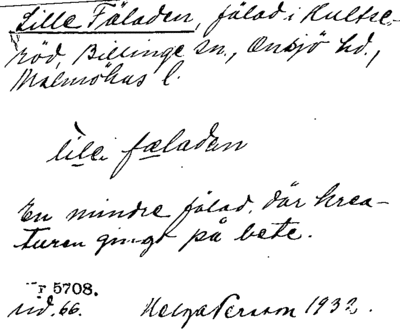 Lille Fäladen, fälad i Kultse-
röd, Billinge sn., Onsjö hd.,
Malmöhus l.
lìlḙ fæladən
En mindre fälad, där krea-
turen gingo på bete.
5708.
sid. 66. Helge Persson 1932.